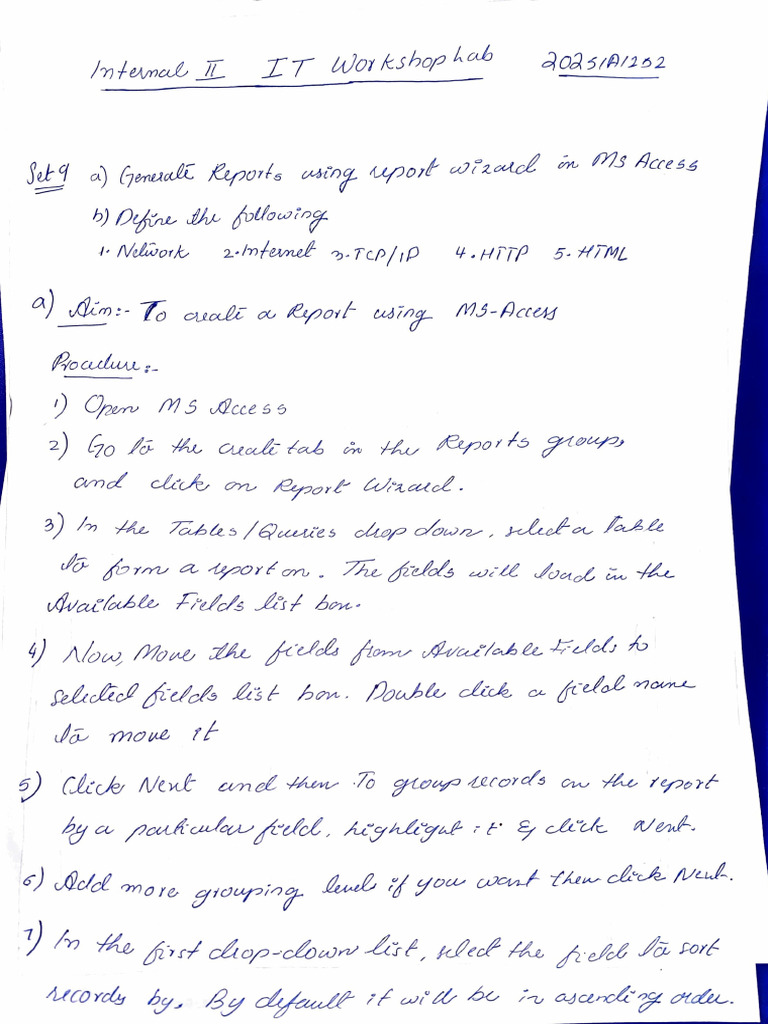 Internal II IT Workshop Lab 20251A1252
Set 9 a) Generate Reports using report wizard in MS Access
b) Define the following
1. Network 2. Internet 3. TCP/IP 4. HTTP 5. HTML
a) Aim:- To create a Report using MS-Access
Procedure:-
1) Open MS Access
2) Go to the create tab in the Reports group,
and click on Report Wizard.
3) In the Tables/Queries drop down, select a Table
to form a report on. The fields will load in the
Available Fields list box.
4) Now, Move the fields from Available Fields to
selected fields list box. Double click a field name
to move it
5) Click Next and then To group records on the report
by a particular field, highlight it & click Next.
6) Add more grouping levels if you want then click Next.
7) In the first drop-down list, select the field to sort
records by. By default it will be in ascending order.